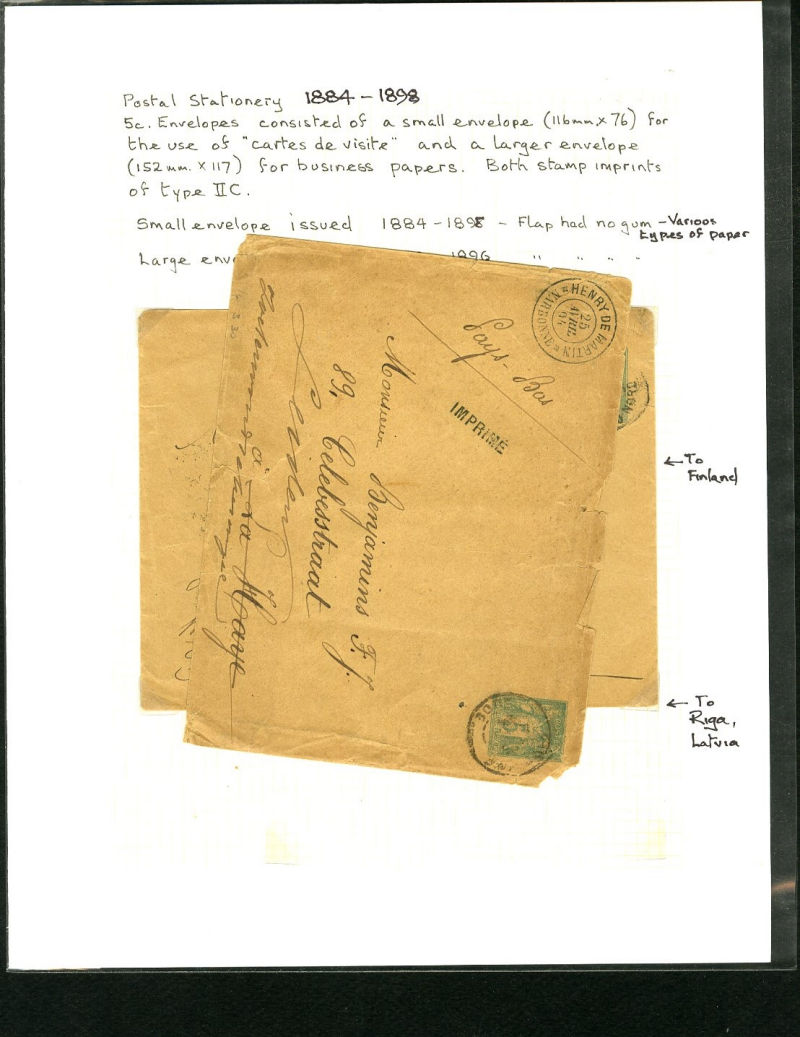 Postal Stationery 1884 - 1898
5c. Envelopes consisted of a small envelope (116mm. x 76) for
the use of "cartes de visite" and a larger envelope
(152 mm. x 117) for business papers. Both stamp imprints
of type II C.
Small envelope issued 1884 - 1898 - Flap had no gum - Various
types of paper
Large env 1896 " " " "
HENRY DE MARTIN
NARBONNE
25
AVRIL
94
Pays-Bas
IMPRIMÉ
Monsieur Benjamins F. J.
89, Celebesstraat
Leiden
à La Haye
← To
Finland
← To
Riga,
Latvia